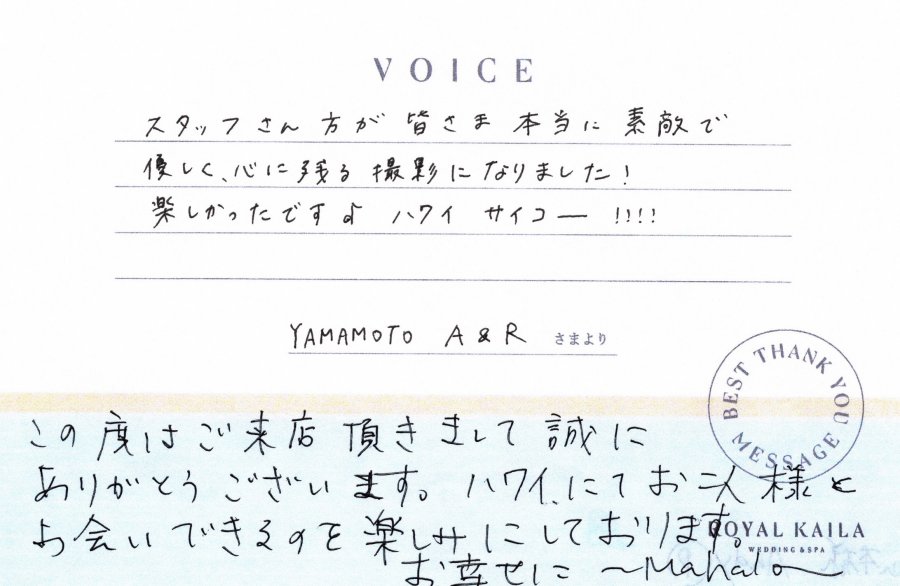 VOICE
スタッフさん方が皆さま本当に素敵で
優しく、心に残る撮影になりました!
楽しかったですよ ハワイ サイコー !!!!
YAMAMOTO A & R さまより
BEST THANK YOU MESSAGE
この度はご来店頂きまして誠に
ありがとうございます。ハワイにてお二人様と
お会いできるのを楽しみにしております。
ROYAL KAILA
WEDDING & SPA
お幸せに ~Mahalo~